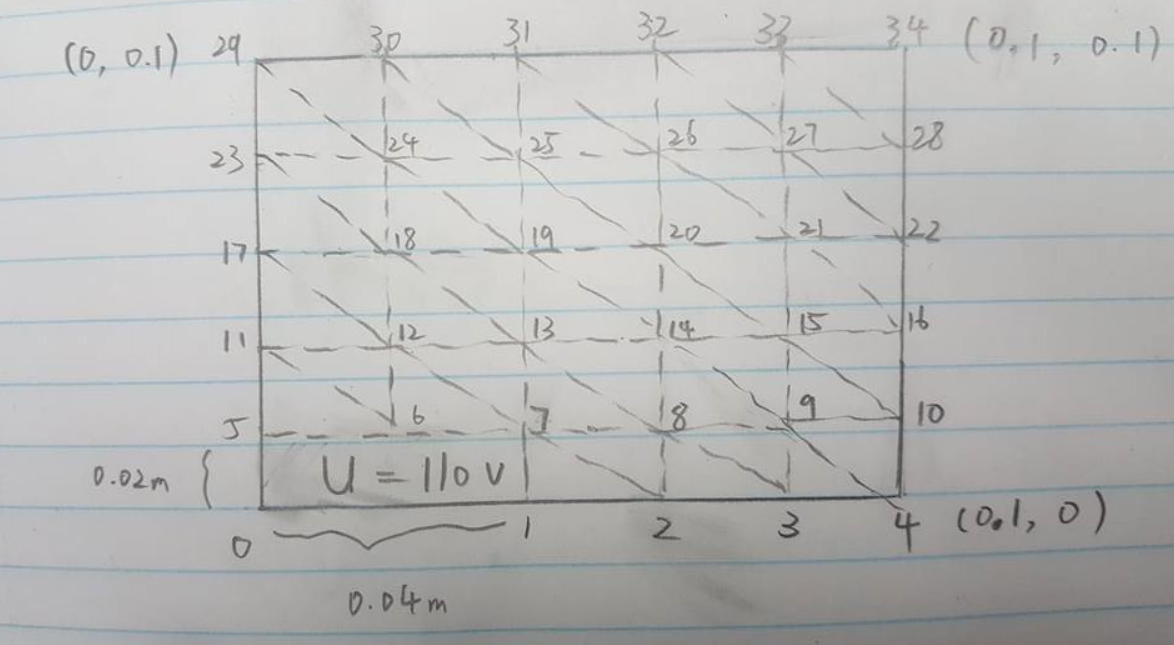 (0, 0.1) 29 30 31 32 33 34 (0.1, 0.1)
23 24 25 26 27 28
17 18 19 20 21 22
11 12 13 14 15 16
5 6 7 8 9 10
0.02m { U = 110 V
0 1 2 3 4 (0.1, 0)
0.04m